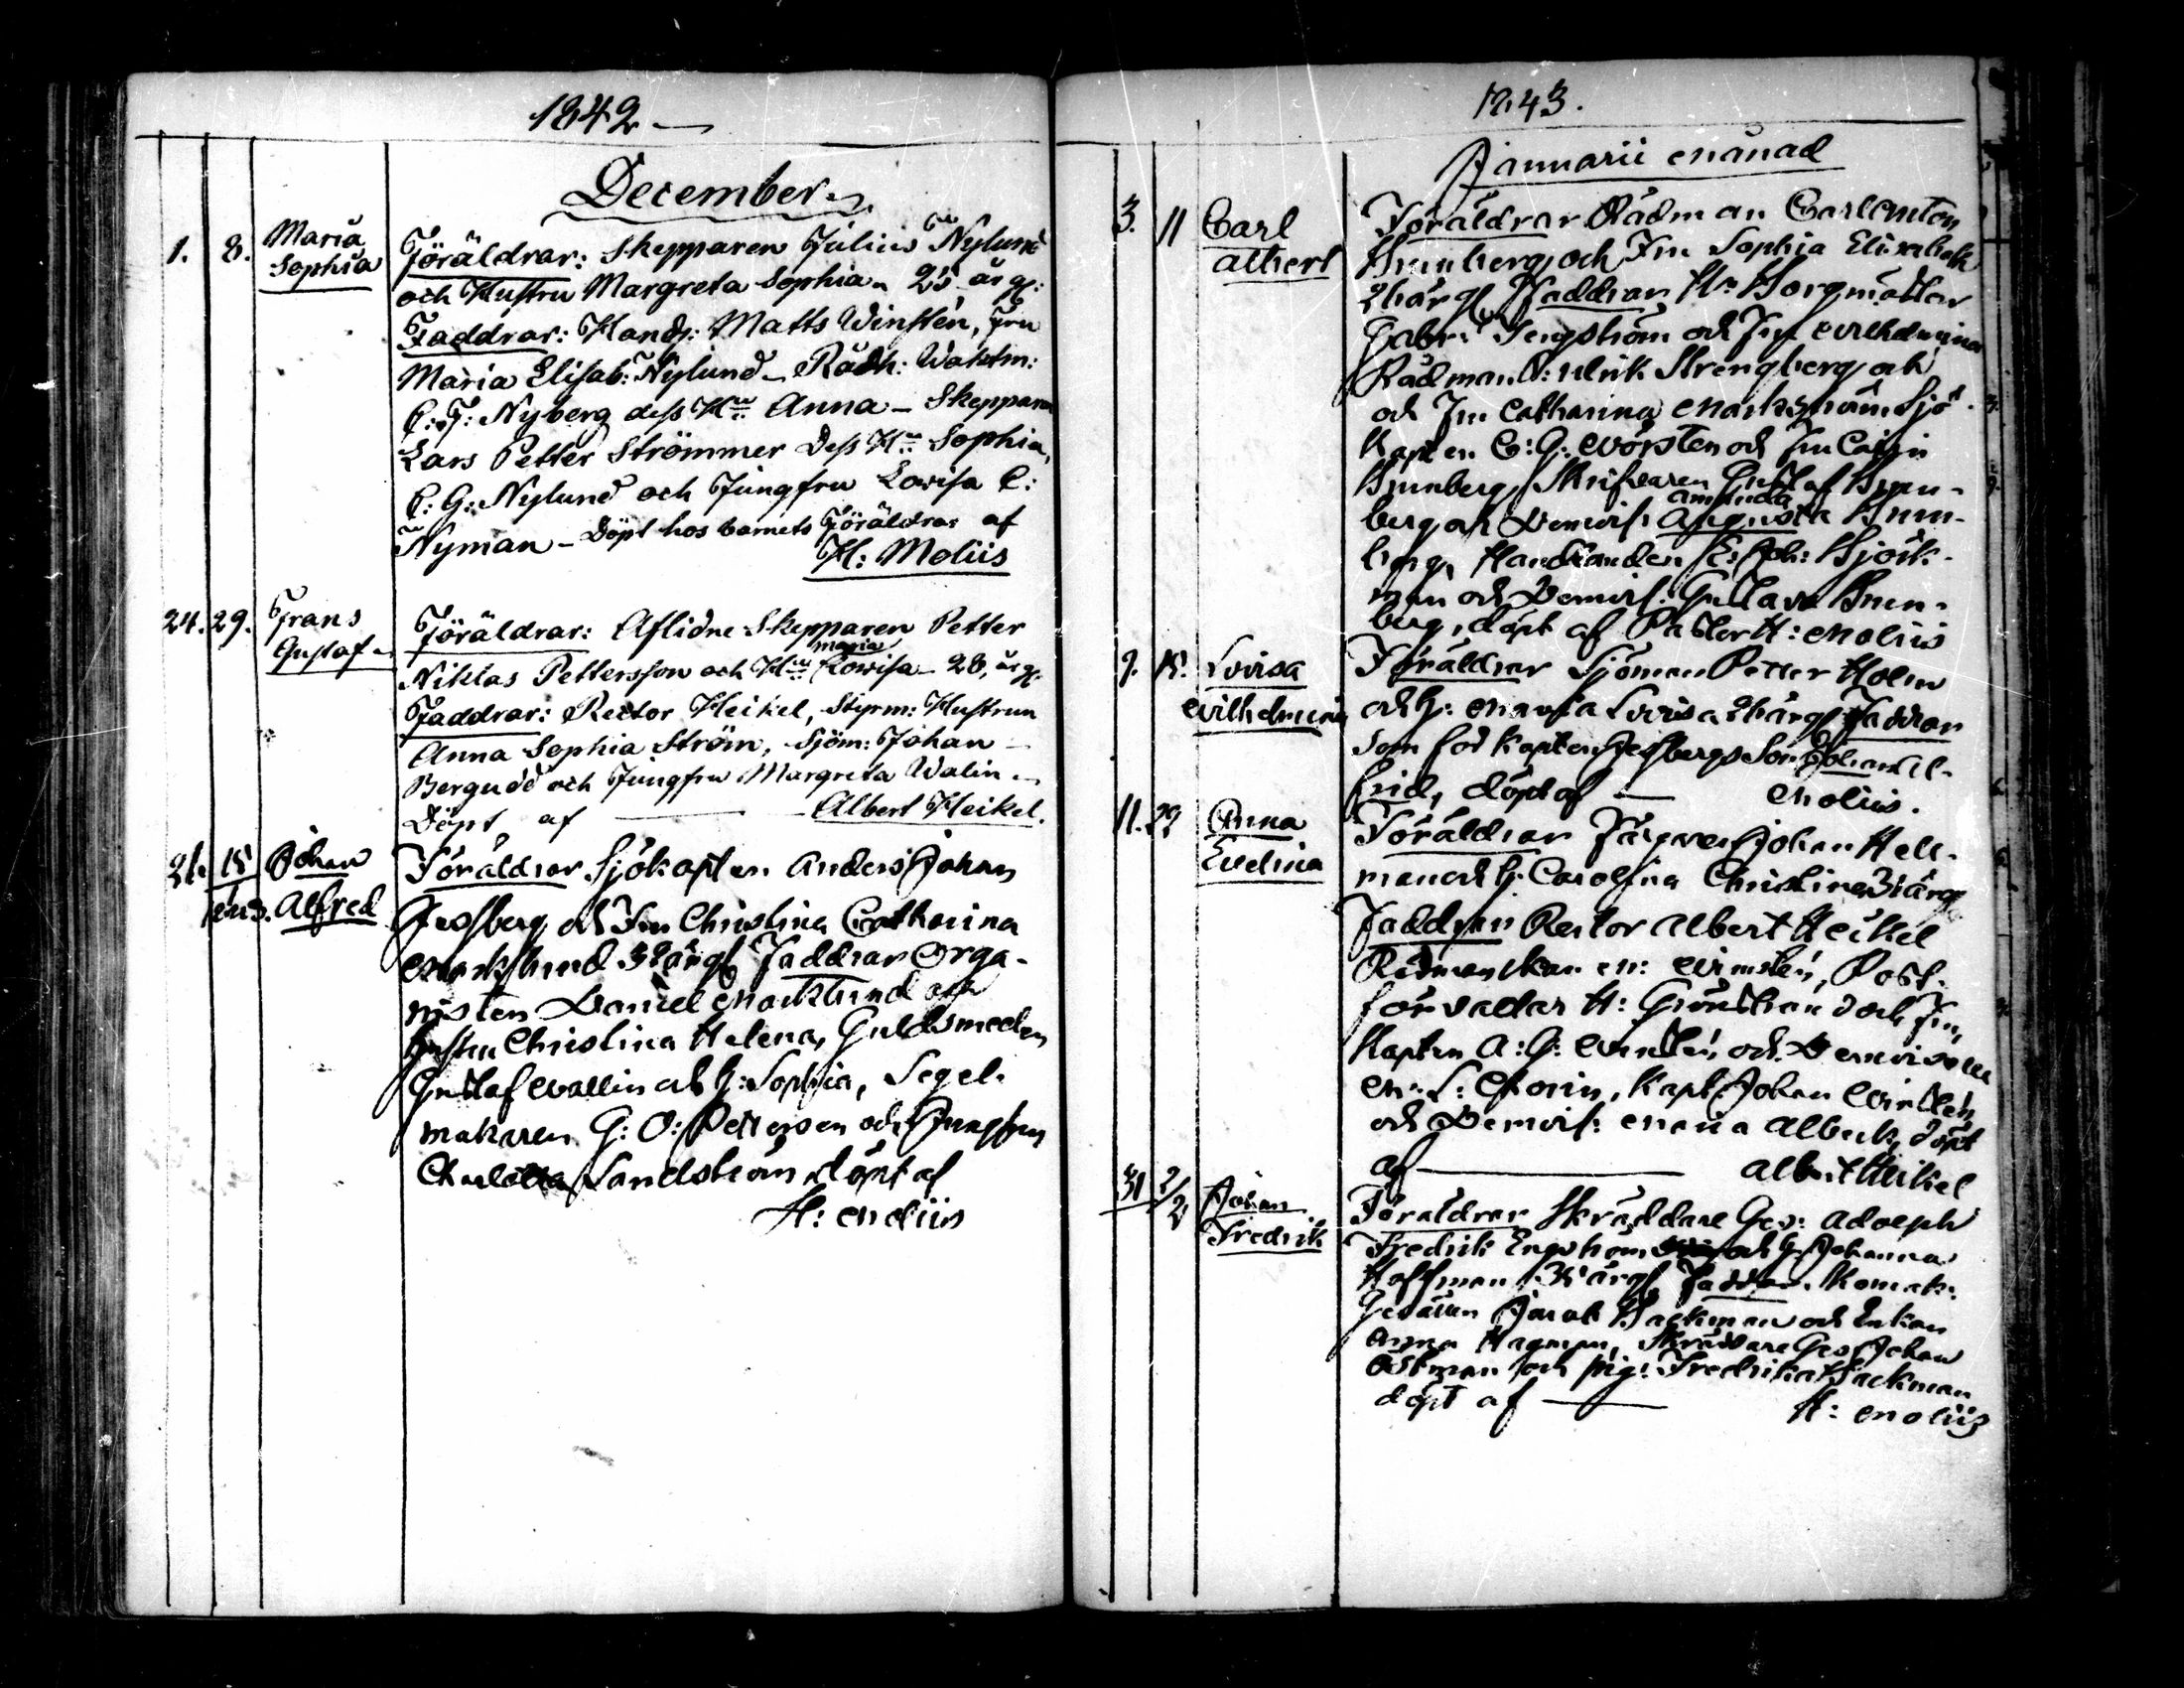 1842 —
December
1. 8. Maria Föräldrar: Skepparen Julius Nylund
Sophia och Hustru Margreta Sophia 25 år gl:
Faddrar: Handl: Matts Winstén, Fru
Maria Elisab: Nylund – Rådh: Waktm:
C: F: Nyberg dess Hu Anna – Skepparen
Lars Petter Strömmer dess Hu Sophia,
C: G: Nylund och Jungfru Lovisa C:
Nyman – Döpt hos barnets Föräldrar af
H: Moliis
24. 29. Frans Föräldrar: Aflidne Skepparen Petter
Gustaf Niklas Pettersson och Hu Maria Lovisa 28, år gl.
Faddrar: Rector Heikel, Styrm: Hustrun
Anna Sophia Ström, Sjöm: Johan
Bergudd och Jungfru Margreta Walin
Döpt af — Albert Heikel.
15 Johan Föräldrar Sjökapten Anders Johan
Alfred och Fru Christina Catharina
Marklund 32 årgl Faddrar Orga-
nisten Daniel Marklund och
Hustru Christina Helena, Guldsmeden
Gustaf Wallin och H: Sophia, Segel-
makaren G: O: Pettersen och Jungfru
Charlotta Sandström döpt af
H: Moliis
1843.
Januarii Månad
3. 11 Carl Föräldrar Rådman Carl Anton
Albert Brunberg och Fru Sophia Elisabeth
Faddrar Hr Borgmästar
Gabr: Tengström och Fru Wilhelmina
Rådman C: Ulrik Strengberg och
och Fru Catharina Markström Sjö
Kapten C: G: och Fru Cajsa
Brunberg, Skrifvaren Gustaf Brun-
berg och Demois: Amanda Augusta Brun-
berg, Handlanden Joh: Björk-
man och Demois: Gustava Brun-
berg, döpt af Pastor H: Moliis
9. 15. Lovisa Föräldrar Sjöman Petter Holm
Wilhelmina och H: Maria Lovisa årgl Faddrar
Som för Kapten Son Johan Al-
frid, döpt af — Moliis.
11. 22 Anna Föräldrar Färgaren Johan Hell-
Evelina man och H: Carolina Christina årgl
Faddrar Rector Albert Heikel
Rådmanskan M: Winstén, Post-
förvaltar H: Grönstrand och Fru,
Kapten A: G: Winstén och Demoiselle
M: L: Kapt: Johan Winstén
och Demois: Maria Albeck, döpt
af — Albert Heikel
31 2/2 Johan Föräldrar Skräddare Ges: Adolph
Fredrik Fredrik Engström och H: Johanna
Hoffman 35 årgl, Faddrar
Gesällen Jacob Backman och Enkan
Anna Hagman, Skräddare Ges: Johan
Östman och pig: Fredrika Backman
döpt af — H: Moliis